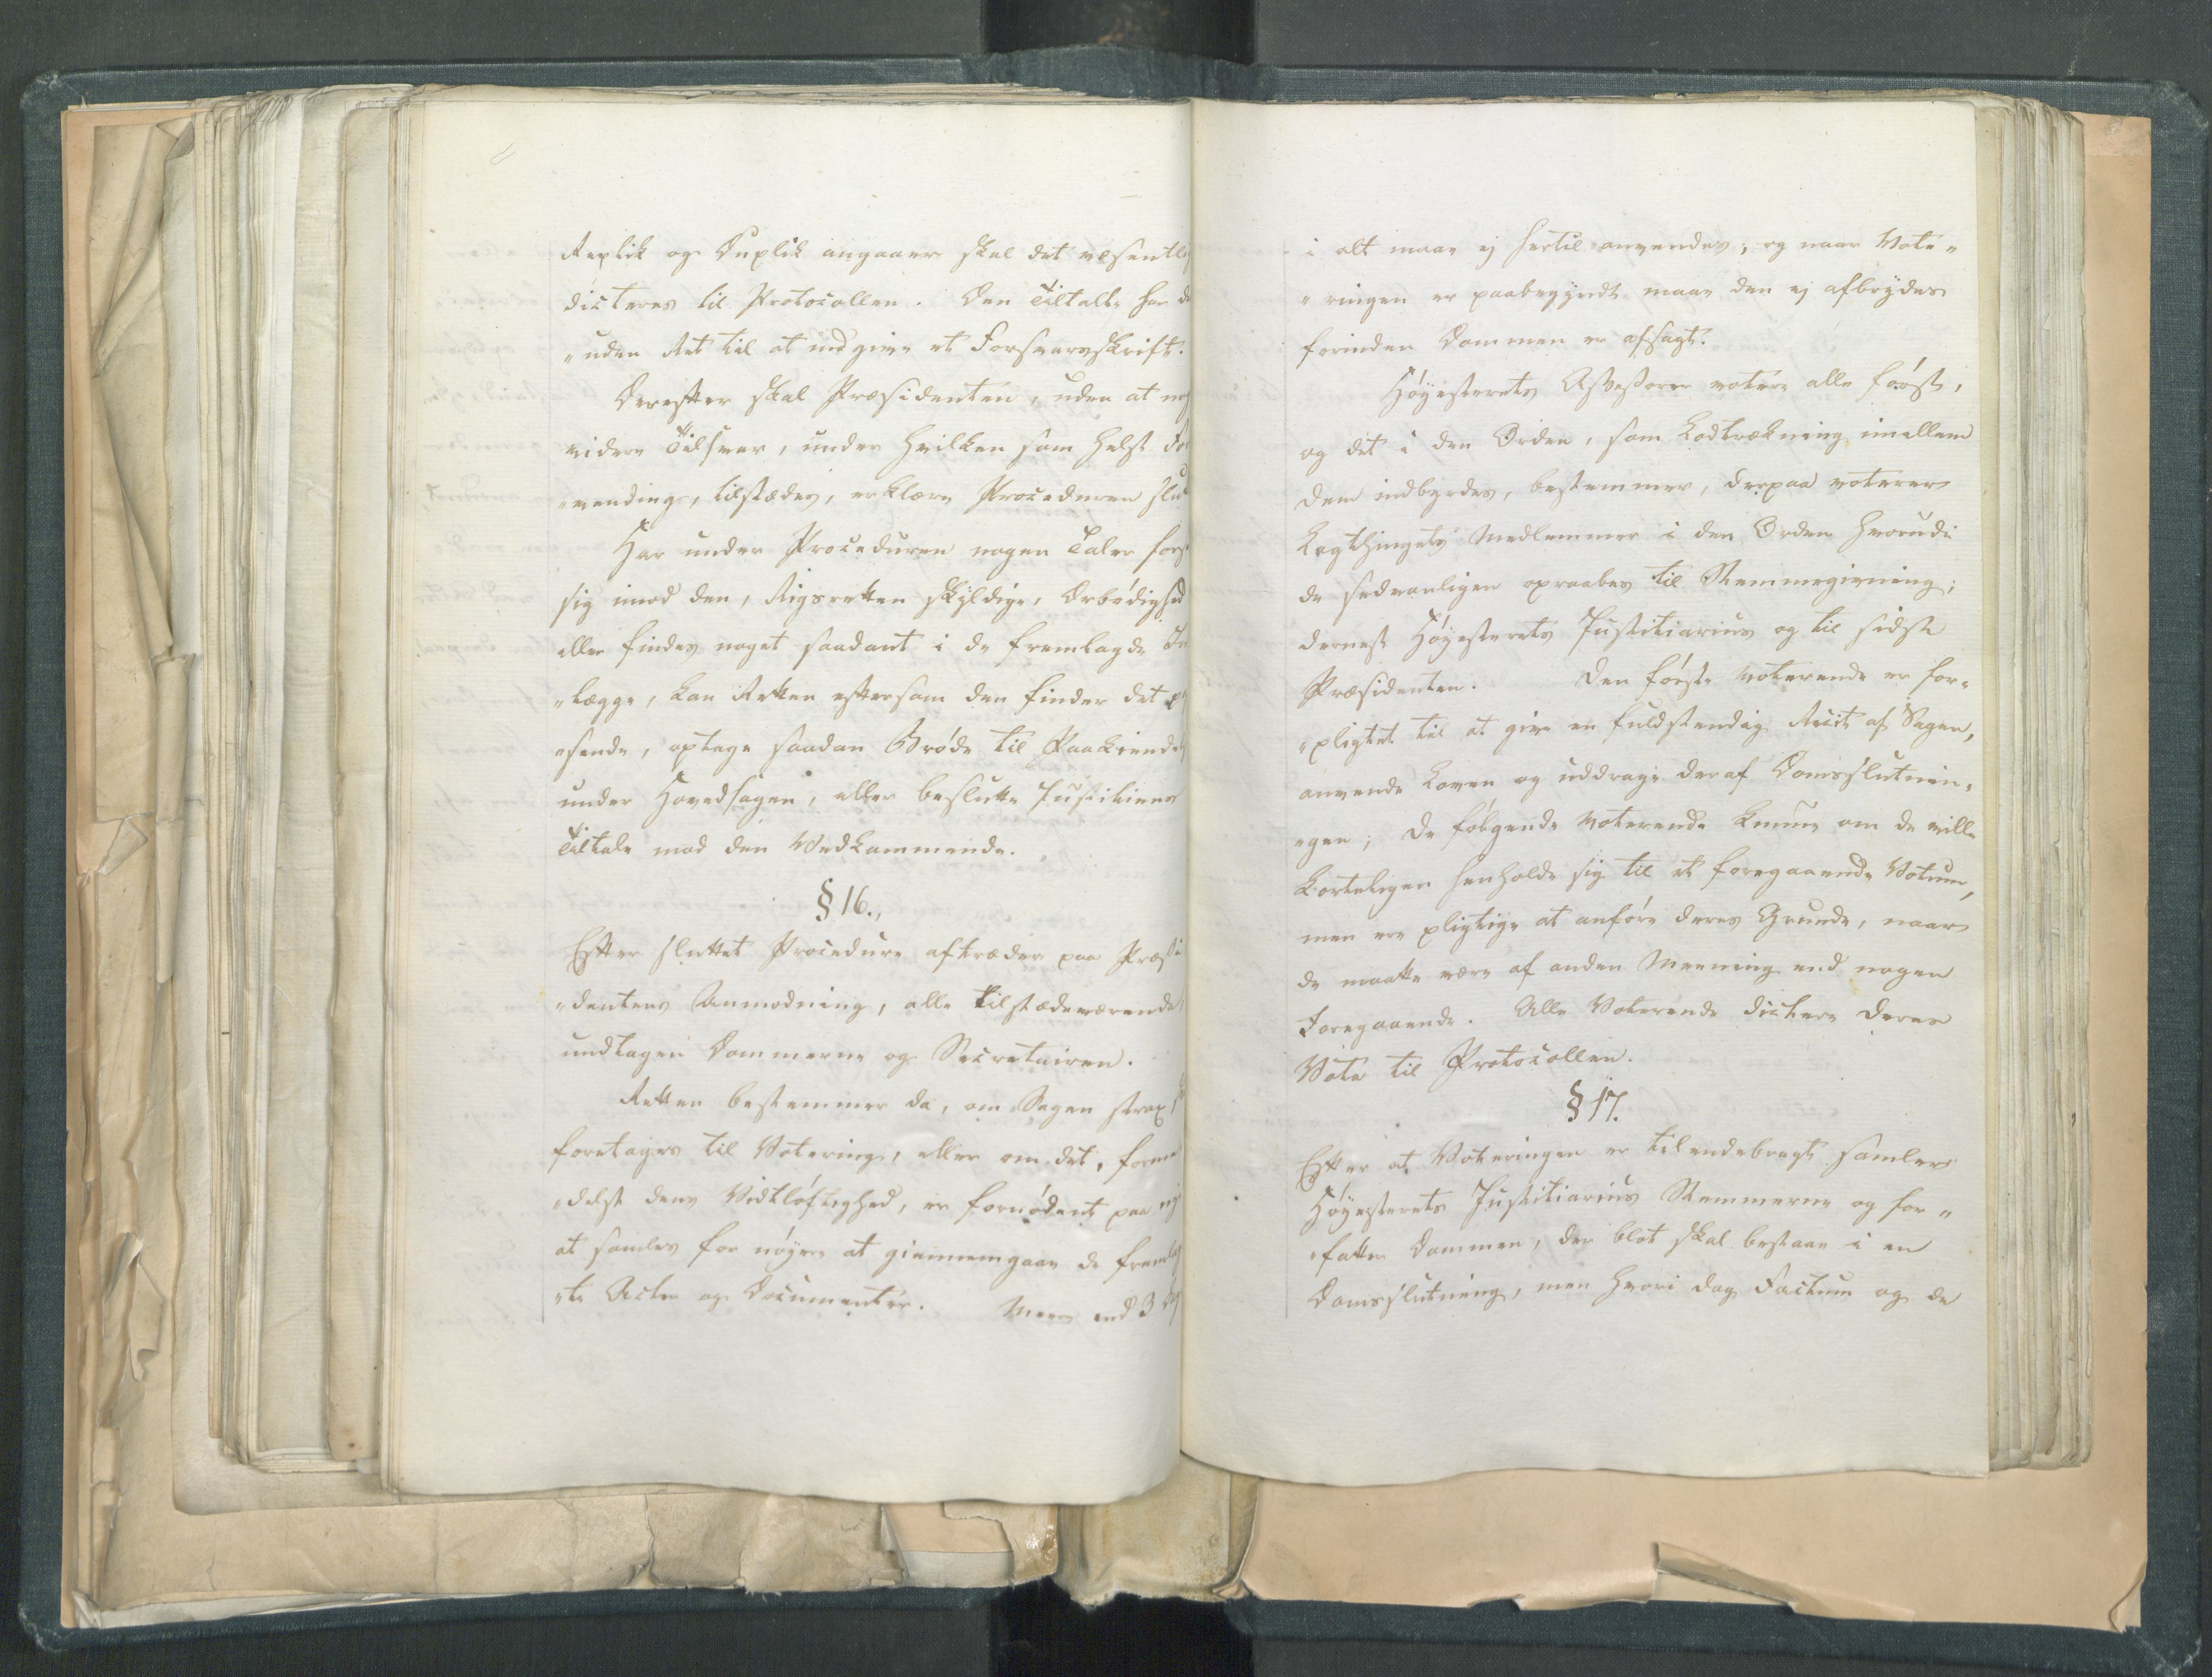 Replik og Duplik angaaer skal det vesentlig
dicteres til Protocollen. Den Tiltalte har de
„uden Ret til at indgive et Forsvarsskrift.
Derefter skal Præsidenten, uden at nog
videre Tilsvar, under hvilken som helst For
„vending, tilstædes, erklære Proceduren slut
Har under Proceduren nogen Taler fors
sig imod den, Rigsretten skyldige, Ærbødighed
eller findes noget saadant i de fremlagde In
„lægge, kan Retten eftersom den finder det p
„sende, optage saadan Brøde til Paakiendel
under Hovedsagen, eller beslutte Justitiens
Tiltale mod den Vedkommende.
§ 16.,
Efter sluttet Procedure aftræder paa Præsi
„dentens Anmodning, alle tilstædeværende,
undtagen Dommerne og Secretairen.
Retten bestemmer da, om Sagen strax s
foretages til Votering, eller om det, forme
„delst dens Vidtløftighed, er fornødent paa ny
at samles for nøyere at giennemgaae de fremlag
„te Acter og Documenter. Meer end 3 D
i alt maae ej hertil anvendes; og naar Vote„
„ringen er paabegyndt maae den ej afbrydes
forinden Dommen er afsagt.
Høyesterets Assessorer votere alle først,
og det i den Orden, som Lodtrækning imellem
dem indbyrdes, bestemmer, derpaa voterer
Lagthingets Medlemmer i den Orden hvorudi
de sedvanligen opraabes til Stemmegivning;
dernest Høyesterets Justitiarius og til sidst
Præsidenten. Den første Voterende er for„
„pligtet til at give en fuldstendig Recit af Sagen,
anvende Loven og uddrage deraf Domsslutnin„
„gen; De følgende Voterende kunne om de ville
korteligen henholde sig til et foregaaende Votum,
men ere pligtige at anføre deres Grunde, naar
de maatte være af anden Meening end nogen
Foregaaende. Alle Voterende dictere deres
Vota til Protocollen.
§ 17.
Efter at Voteringen er tilendebragt samler
Høyesterets Justitiarius Stemmerne og for„
„fatter Dommen, der blot skal bestaae i en
Domsslutning, men hvori dog Factum og de